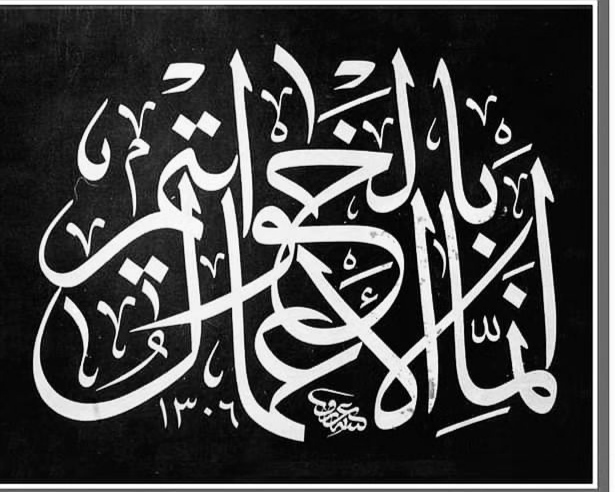 إِنَّمَا الْأَعْمَالُ بِالْخَوَاتِيمِ
١٣٠٦